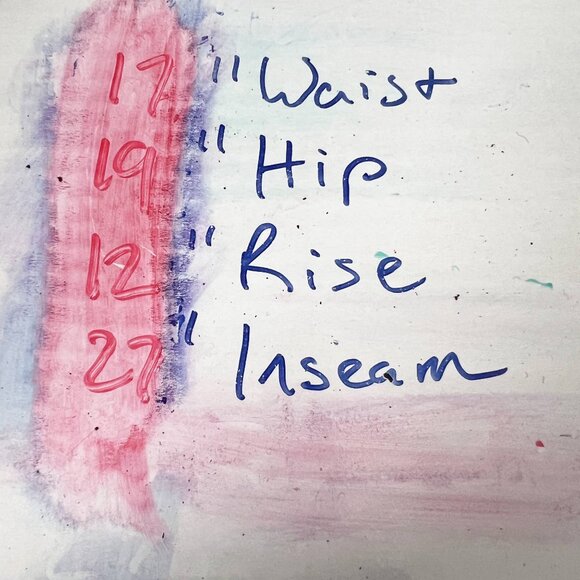 17" Waist
19" Hip
12" Rise
27" Inseam